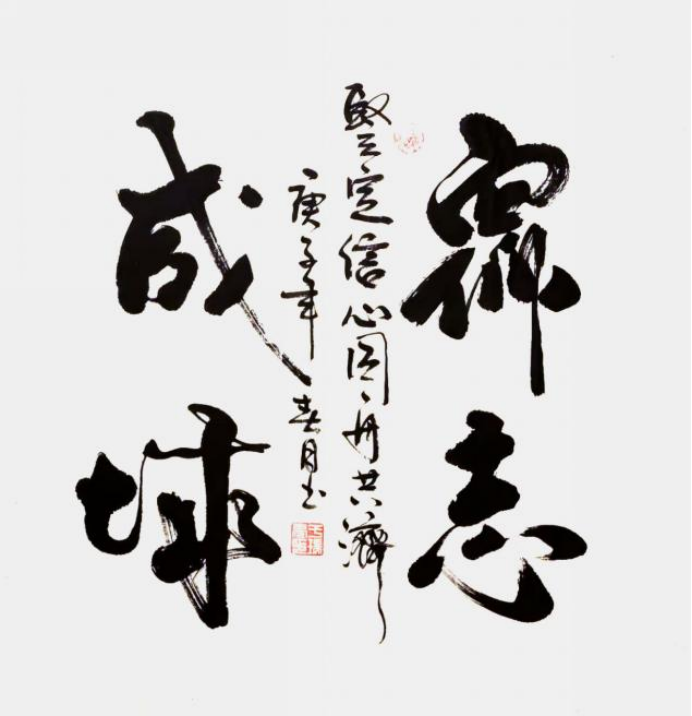 眾志
成城
堅定信心同舟共濟
庚子年春月书